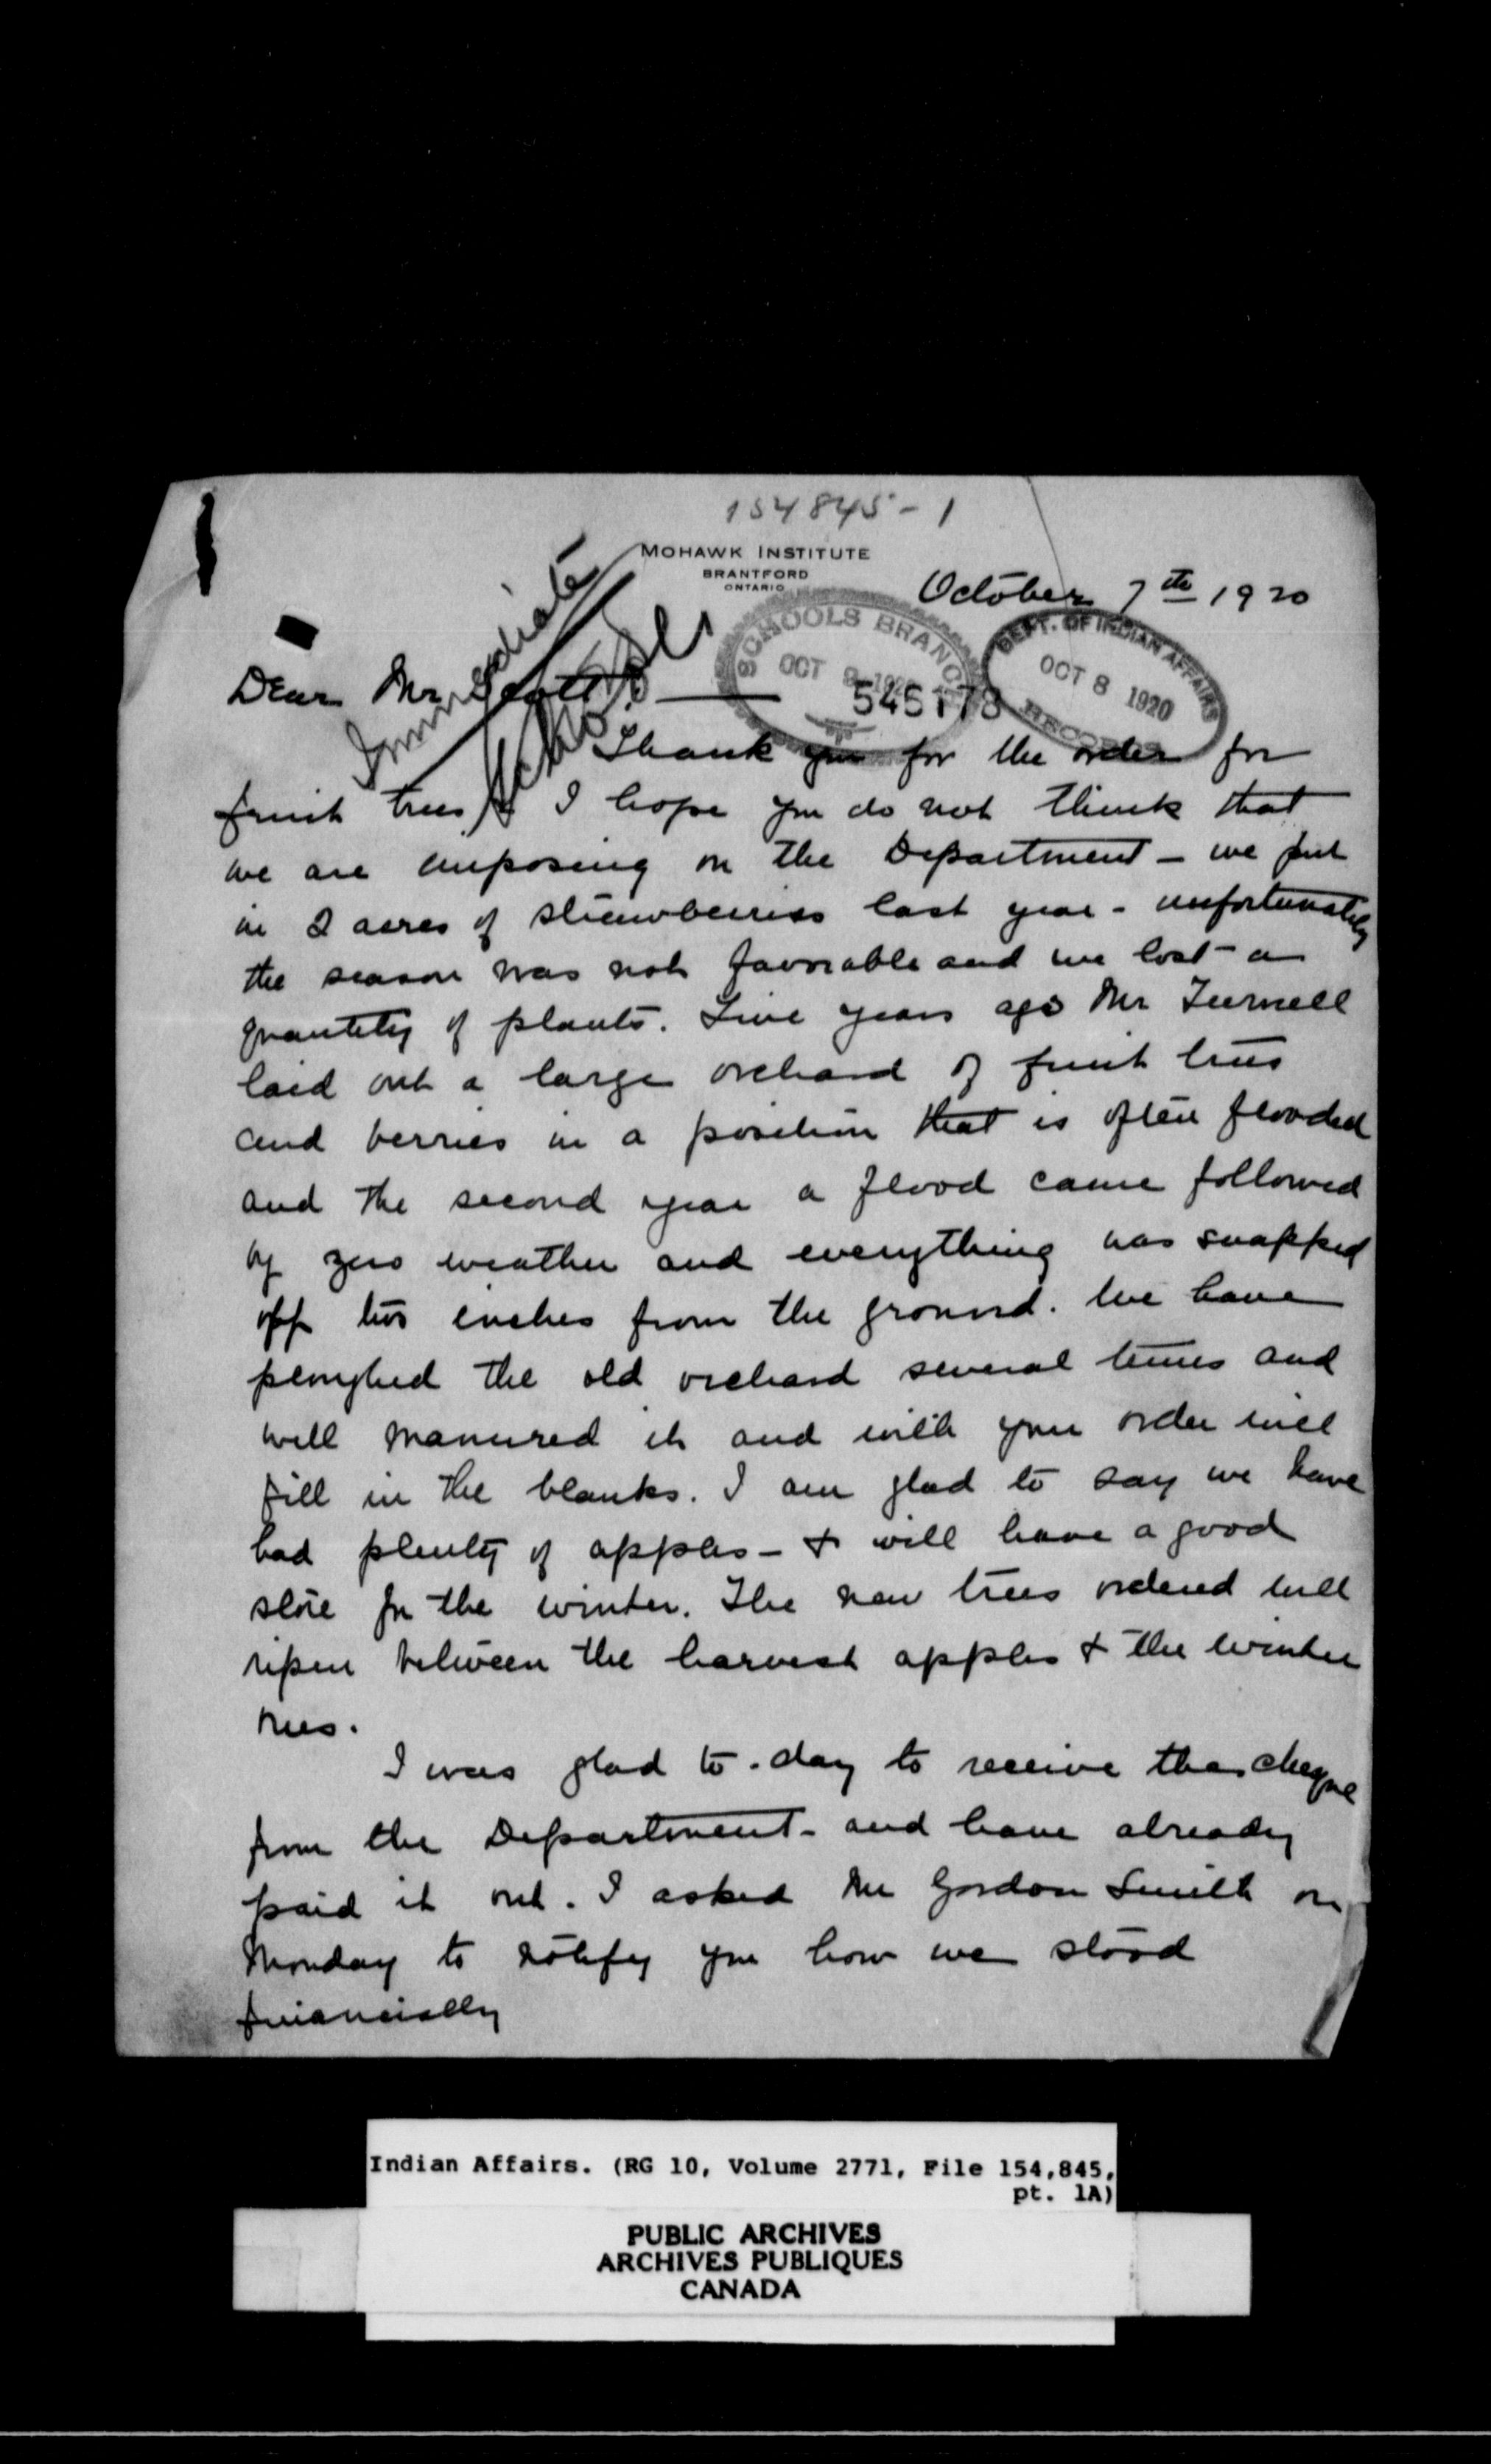 154845-1
MOHAWK INSTITUTE
BRANTFORD
ONTARIO
October 7th 1920
SCHOOLS BRANCH
OCT 8 1920
DEPT. OF INDIAN AFFAIRS
OCT 8 1920
RECORDS
545178
Immediate
Dear Mr Scott
Thank you for the order for
fruit trees, I hope you do not think that
we are imposing on the Department - we put
in 2 acres of strawberries last year - unfortunately
the season was not favorable and we lost a
quantity of plants. Five years ago Mr Turnell
laid out a large orchard of fruit trees
and berries in a position that is often flooded
and the second year a flood came followed
by zero weather and everything was snapped
off two inches from the ground. We have
ploughed the old orchard several times and
well manured it and with your order will
fill in the blanks. I am glad to say we have
had plenty of apples - & will have a good
store for the winter. The new trees ordered will
ripen between the harvest apples & the winter
ones.
I was glad to-day to receive the cheque
from the Department - and have already
paid it out. I asked Mr Gordon Smith on
Monday to notify you how we stood
financially
Indian Affairs. (RG 10, Volume 2771, File 154,845,
pt. 1A)
PUBLIC ARCHIVES
ARCHIVES PUBLIQUES
CANADA